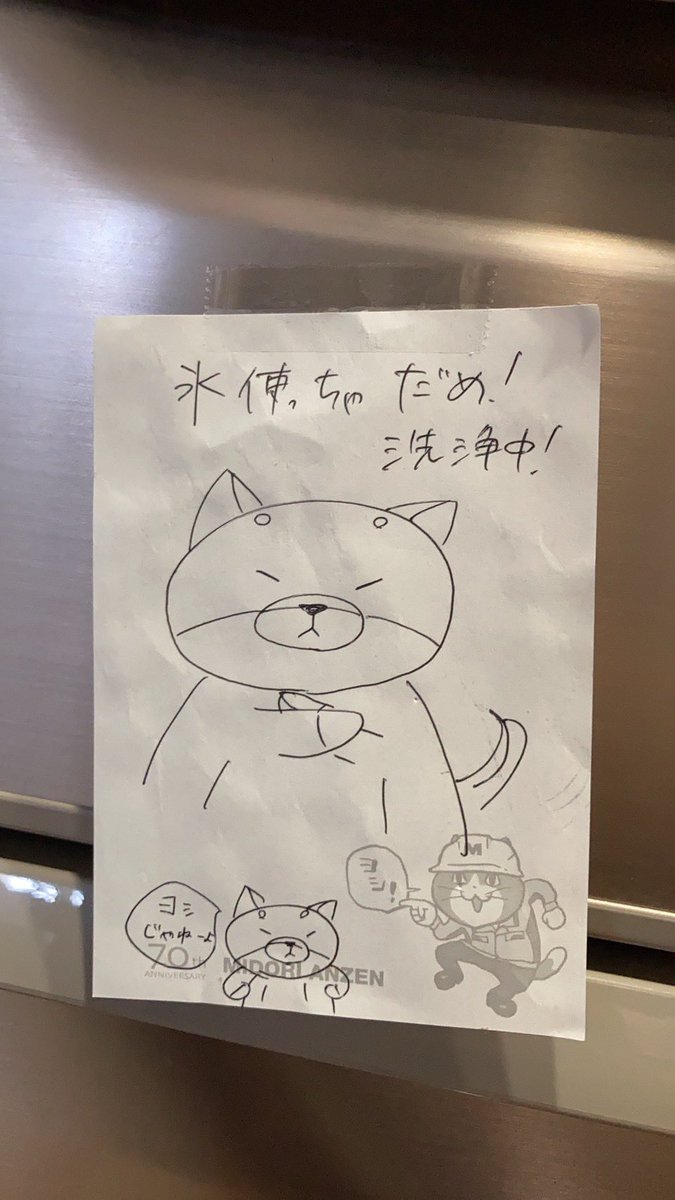 氷使っちゃだめ!
洗浄中!
ヨシ!
M
ヨシ
じゃねーよ
70th
ANNIVERSARY
MIDORI ANZEN